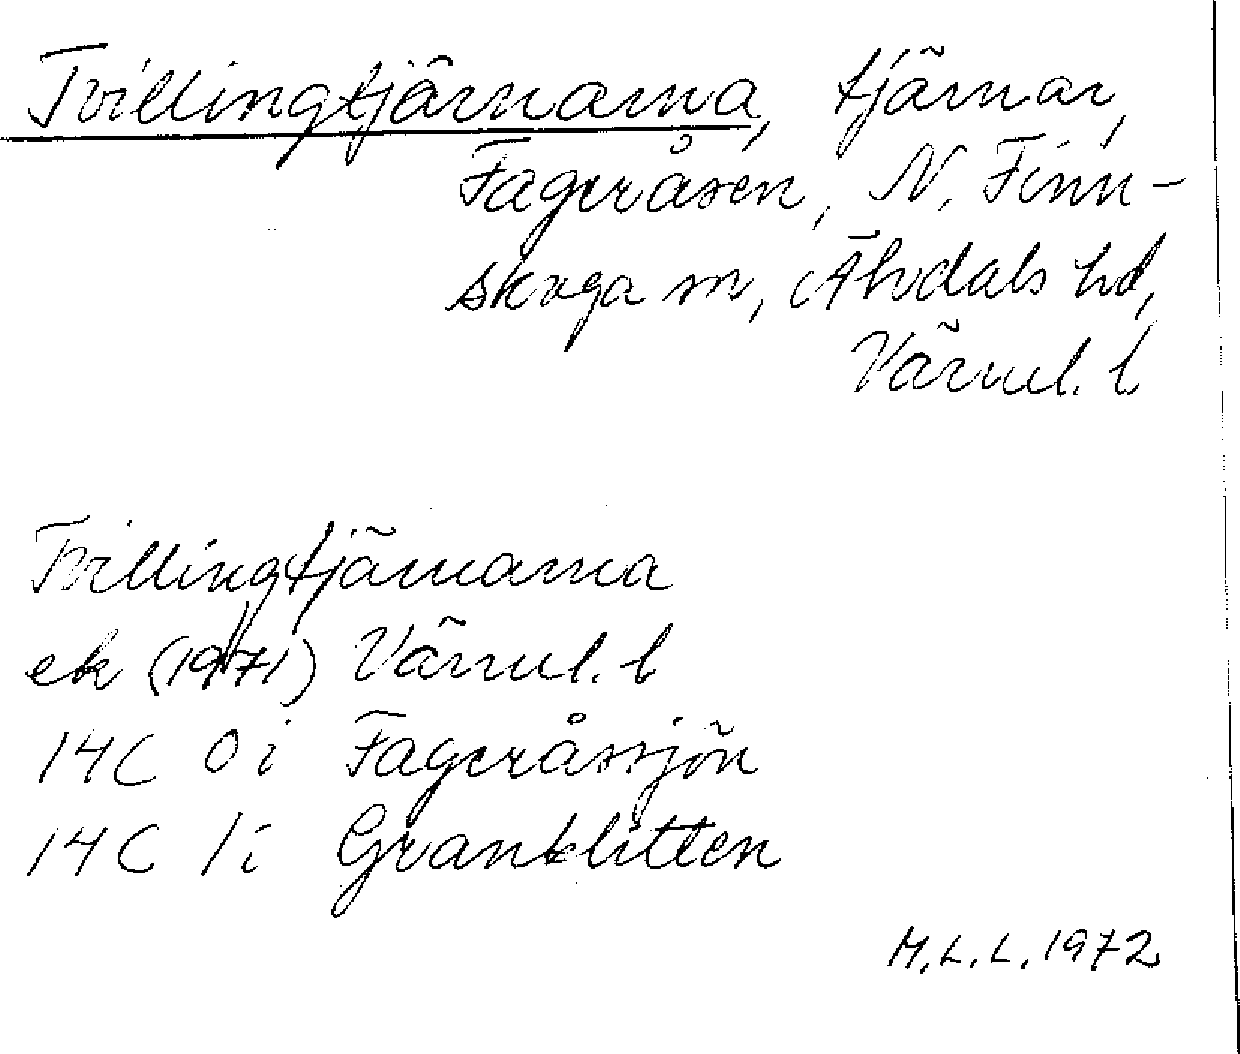 Tvillingtjärnarna, tjärnar,
Fageråsen, N. Finn-
skoga sn, Älvdals hd,
Värml. l
Tvillingtjärnarna
ek (1971) Värml. l
14C 0i Fageråssjön
14C 1i Granklitten
M.L.L. 1972